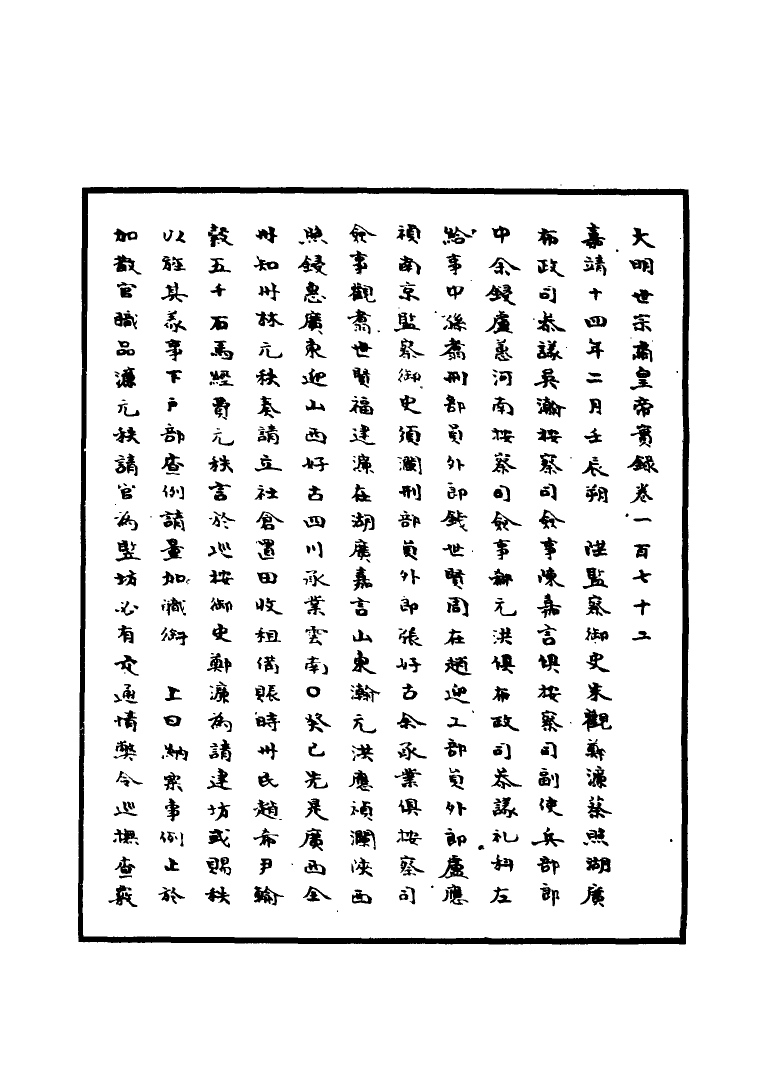 大明世宗肅皇帝實錄卷一百七十二
嘉靖十四年二月壬辰朔　陞監察御史朱觀鄭濂蔡照湖廣
布政司叅議吳瀚按察司僉事陳嘉言俱按察司副使兵部郎
中余鋟盧蕙河南按察司僉事鄒元洪俱布政司叅議礼科左
給事中孫喬刑部員外郎錢世賢周在趙迎工部員外郎盧應
禎南京監察御史須瀾刑部員外郎張好古余承業俱按察司
僉事觀喬世賢福建濂在湖廣嘉言山東瀚元洪應禎瀾陝西
照鋟惠廣東迎山西好古四川承業雲南〇癸巳先是廣西全
州知州林元秩奏請立社倉置田收租備賑時州民趙希尹輸
穀五千石馬經費元秩言於巡按御史鄭濂為請建坊或賜秩
以旌其義事下戶部查例請量加職銜　上曰納粟事例止於
加散官職品濂元秩請官為竪坊必有交通情弊令巡撫查覈